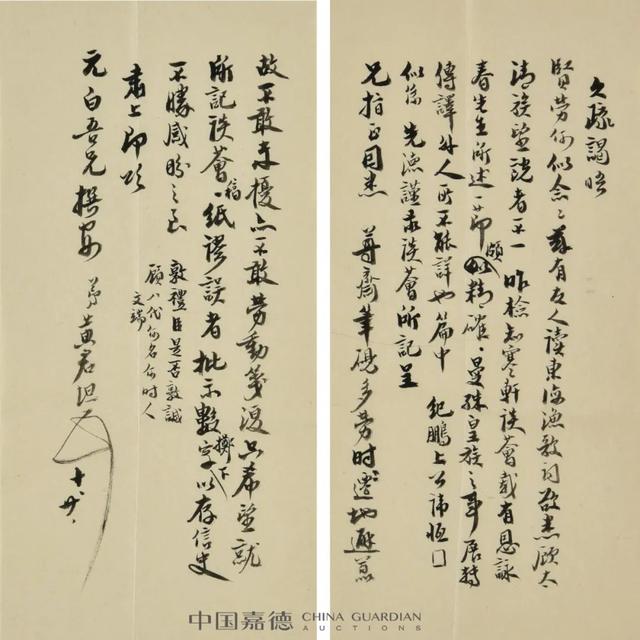 久疏謁晤
賢勞何似念念茲有友人讀東海漁歌詞欲悉顧太
清族望說者不一昨檢知寒軒談薈載有恩詠
春先生所述一節頗精確、曼殊皇族之事展轉
傳譯外人所不能詳也篇中 紀鵬上公諱恆口
似係 先漁謹錄談薈所記呈
兄指正因悉 尊齋筆硯多勞時遷地避囂
故不敢走擾亦不敢勞動箋復只希望就
所記談薈、稿紙謬誤者批示數字擲下以存信史
不勝感盼之至
敦禮臣是否敦誠
顧八代何名何時人
文端
肅上即頌
元白吾兄撰安 弟黃君坦 十、廿、
中国嘉德 CHINA GUARDIAN
AUCTIONS